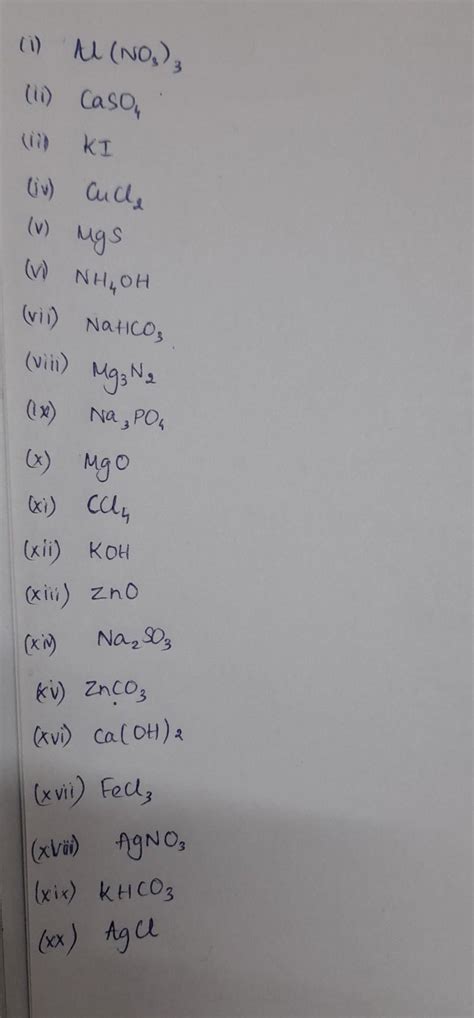 (i) Al(NO₃)₃
(ii) CaSO₄
(iii) KI
(iv) CuCl₂
(v) MgS
(vi) NH₄OH
(vii) NaHCO₃
(viii) Mg₃N₂
(ix) Na₃PO₄
(x) MgO
(xi) CCl₄
(xii) KOH
(xiii) ZnO
(xiv) Na₂SO₃
(xv) ZnCO₃
(xvi) Ca(OH)₂
(xvii) FeCl₃
(xviii) AgNO₃
(xix) KHCO₃
(xx) AgCl